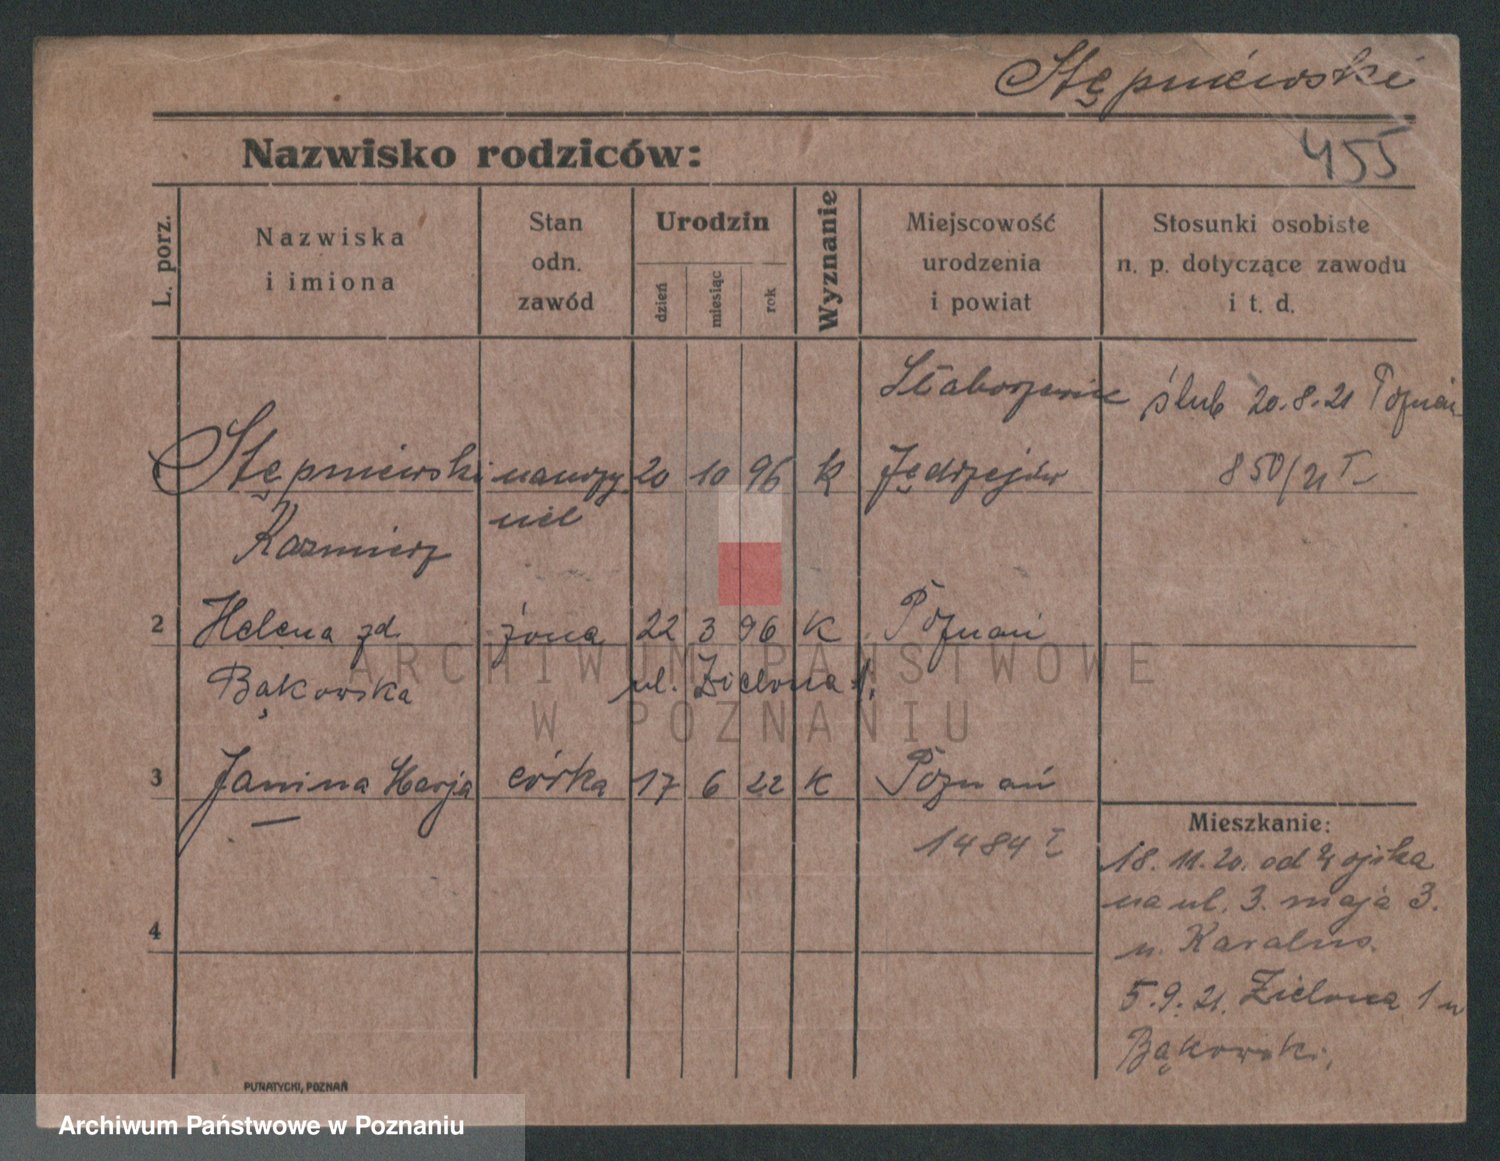 Stępniewski
455
Nazwisko rodziców:
L. porz.
Nazwiska
i imiona
Stan
odn.
zawód
Urodzin
dzień
miesiąc
rok
Wyznanie
Miejscowość
urodzenia
i powiat
Stosunki osobiste
n. p. dotyczące zawodu
i t. d.
ślub 20.8.21 Poznań
1 Stępniewski nauczy 20 10 96 k Jędrzejów 850/21
Kazmierz ciel
2 Helena zd. żona 22 3 96 k Poznań
Bąkowska ul. Zielona 1.
3 Janina Marja córka 17 6 22 k Poznań
1484
Mieszkanie:
18.11.20. od Wojska
na ul. 3. maja 3.
u. Karalus.
5.9.21. Zielona 1 u
Bąkowski.
4
PUTIATYCKI, POZNAŃ
ARCHIWUM PAŃSTWOWE
W POZNANIU
Archiwum Państwowe w Poznaniu